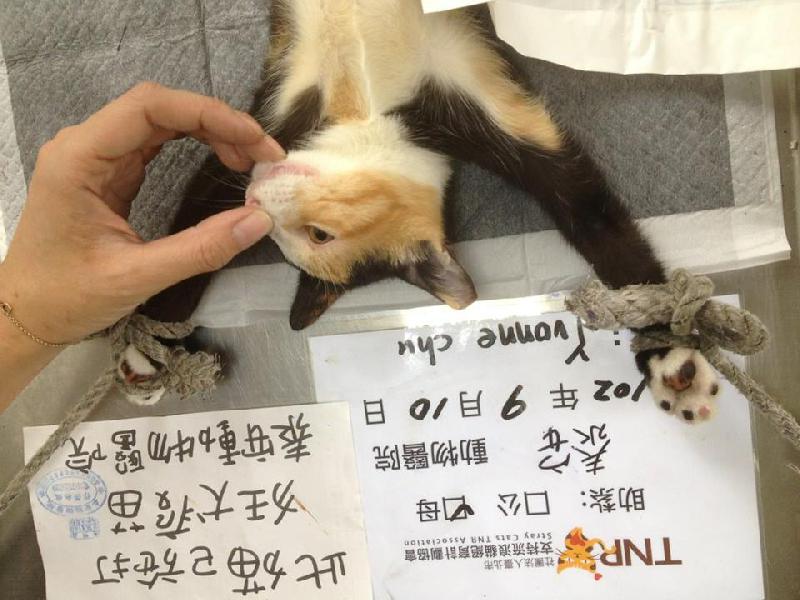 TNR
社團法人臺北市
支持流浪貓絕育計劃協會
Stray Cats TNR Association
助紮： □公 ☑母
泰安 動物醫院
102 年 9 月 10 日
: Yvonne chu
此貓已施打
狂犬疫苗
泰安動物醫院